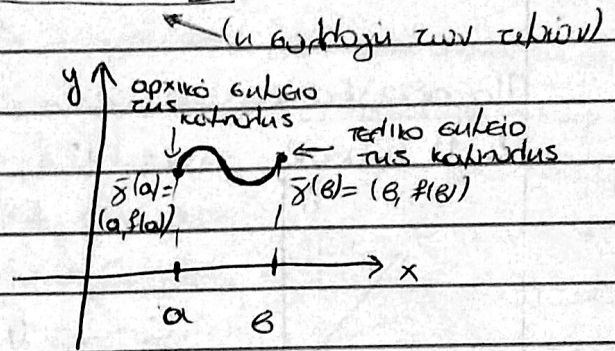 (η συλλογή των τιμών)
y
αρχικό σημείο
της καμπύλης
τελικό σημείο
της καμπύλης
γ̄(α)=
(α, f(α))
γ̄(β)= (β, f(β))
x
α
β